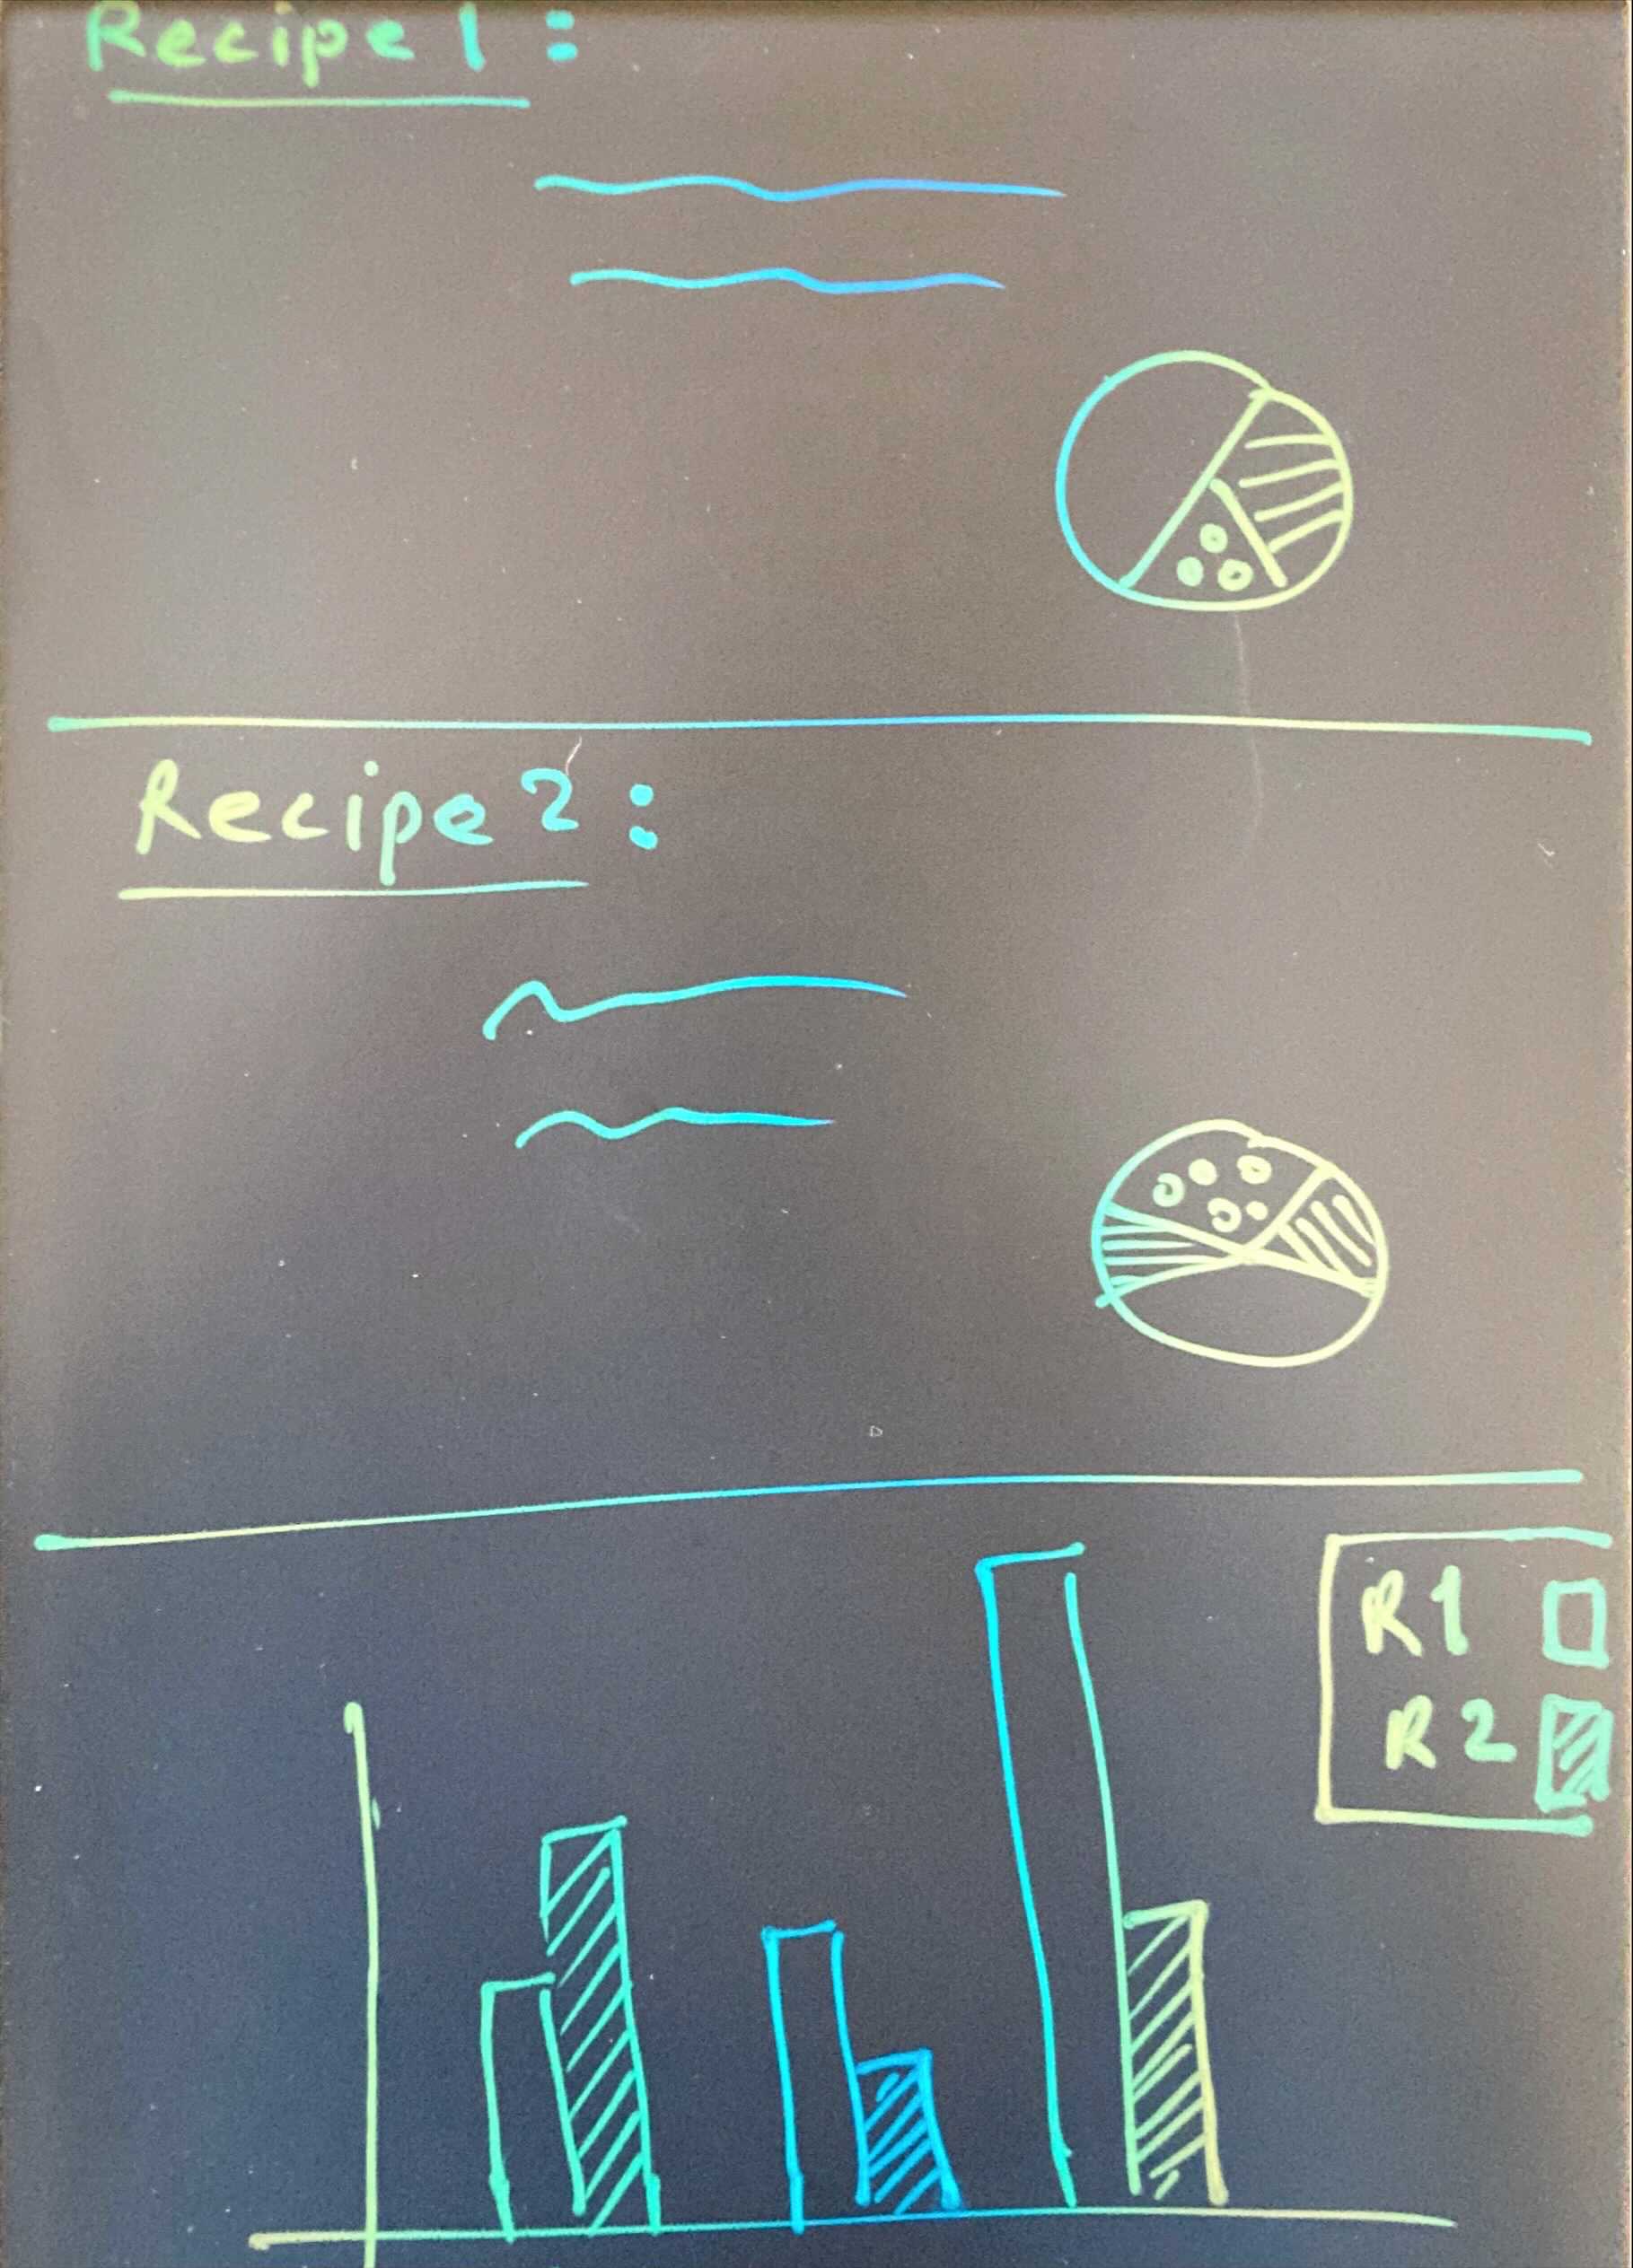 Recipe 1 :
Recipe 2 :
R1
R2